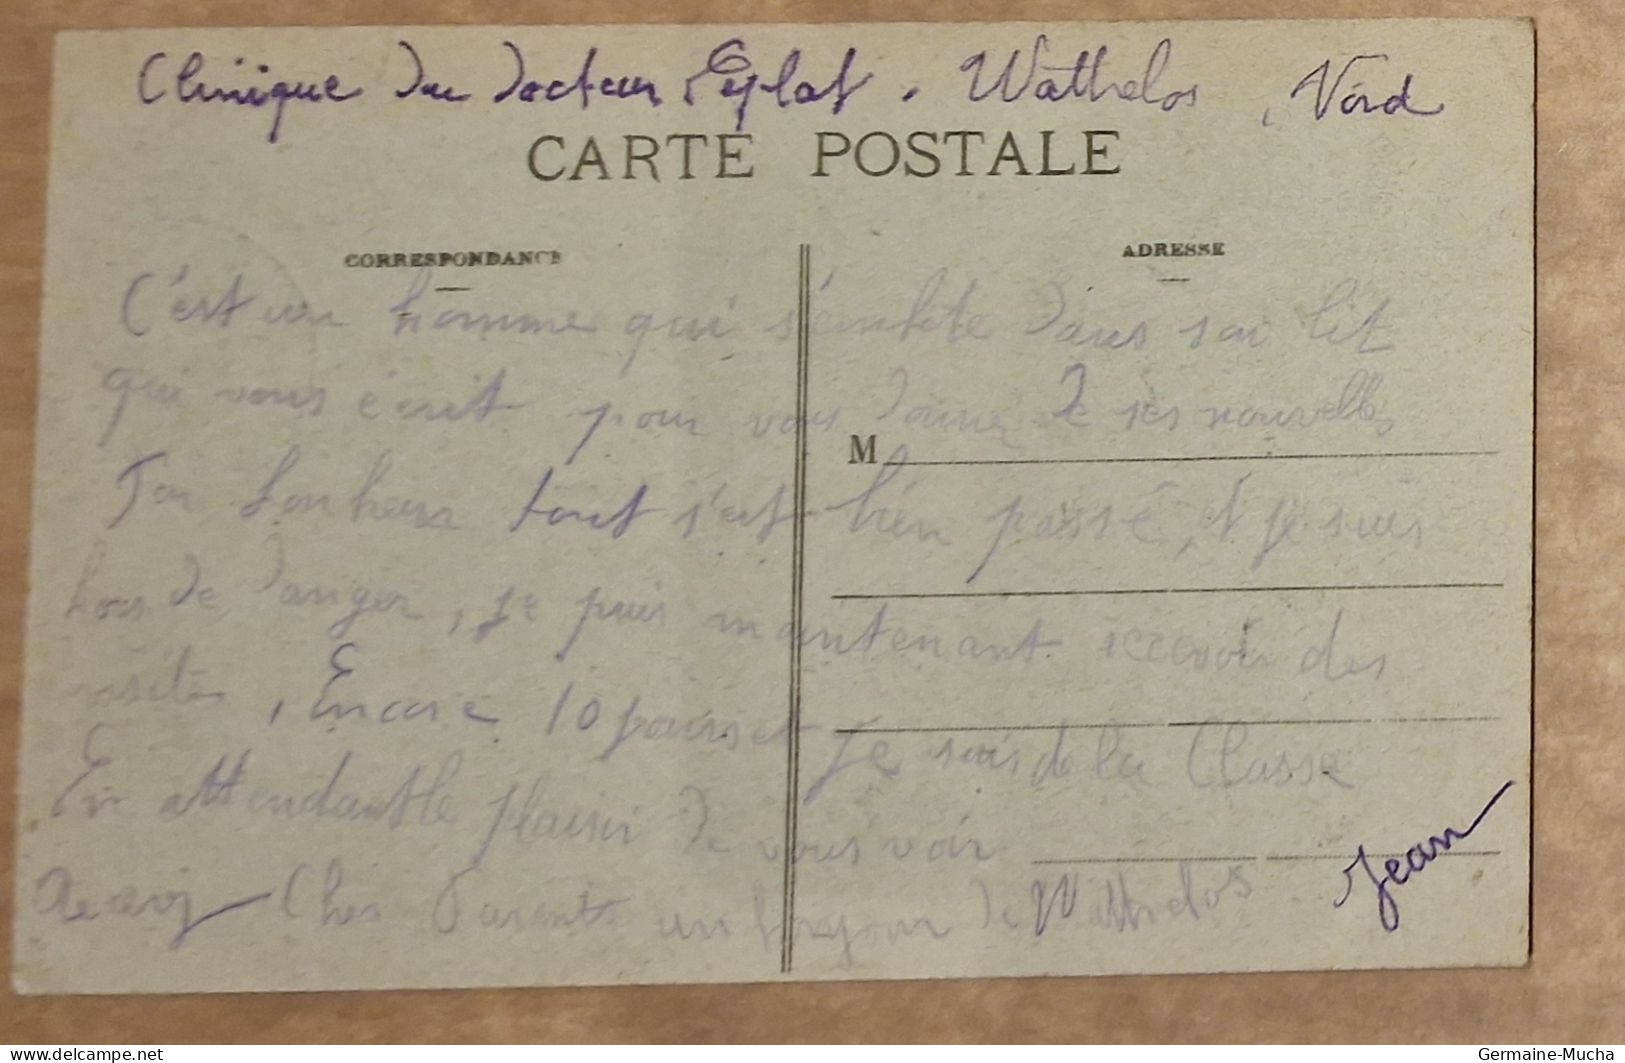 Clinique du docteur Leplat. Wathelos, Nord
CARTE POSTALE
CORRESPONDANCE
ADRESSE
C'est un homme qui s'embete dans son lit
qui vous écrit pour vous donner de ses nouvelles
M
Par bonheur tout s'est bien passé, et je suis
hors de danger, je puis maintenant recevoir des
visites, Encore 10 jours et je suis de la Classe
En attendant le plaisir de vous voir
Recevez Chers Parents un bonjour de Wathelos
Jean
Germaine-Mucha